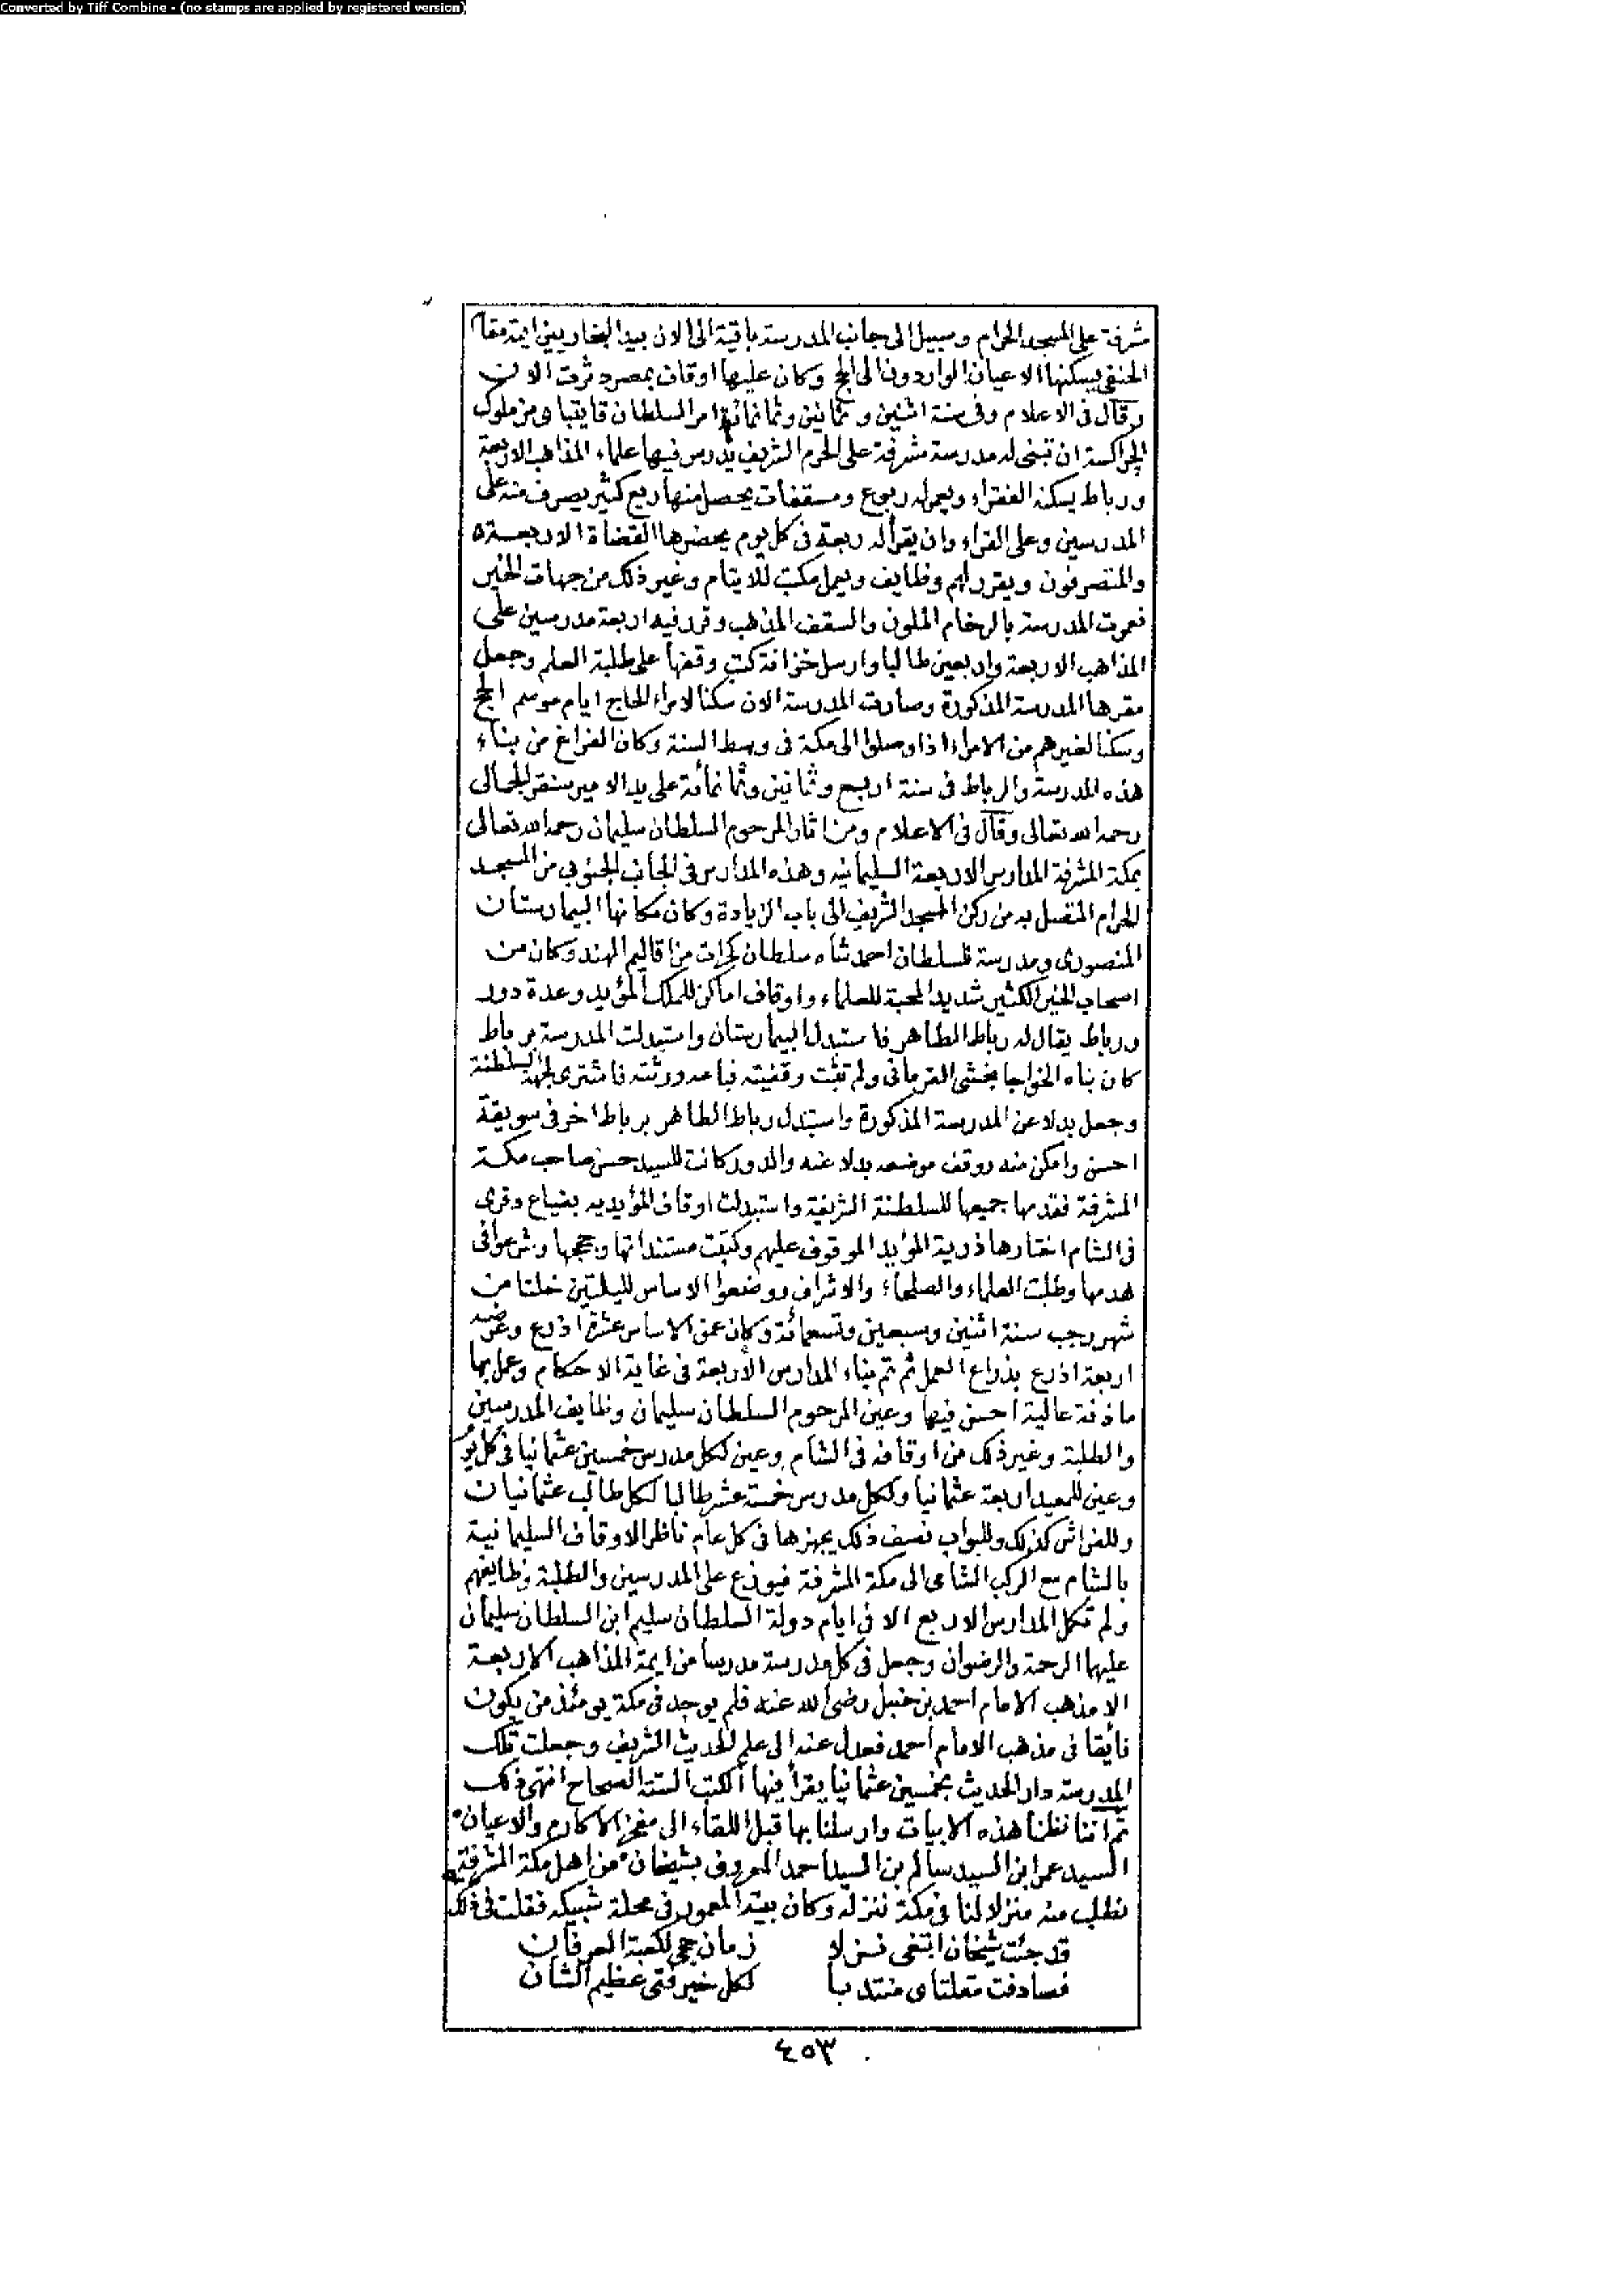 Converted by Tiff Combine - (no stamps are applied by registered version)
مشرفة على المسجد الحرام وسبيل الى جانب المدرسة باقية الى الان بيد البخاريين ايمة مقام
الحنفي يسكنها الاعيان الواردون الى الحج وكان عليها اوقاف بمصر دثرت الان
وقال فى الاعلام وفى سنة اثنين وثمانين وثمانمائة امر السلطان قايتباى من ملوك
الجراكسة ان تبنى له مدرسة مشرفة على الحرم الشريف يدرس فيها علماء المذاهب الاربعة
ورباط يسكنه الفقراء ويعمل له ربوع ومسقفات يحصل منها ريع كثير يصرف منه على
المدرسين وعلى القراء وان يقرأ له ربعة فى كل يوم يحضرها القضاة الاربعة
والمتصرفون ويقرر لهم وظايف ويعمل مكتب للايتام وغير ذلك من جهات الخير
فعمرت المدرسة بالرخام الملون والسقف المذهب وقرر فيه اربعة مدرسين على
المذاهب الاربعة واربعين طالبا وارسل خزانة كتب وقفها على طلبة العلم وجعل
مقرها المدرسة المذكورة وصارت المدرسة الان سكنا لامراء الحاج ايام موسم الحج
وسكنا لغيرهم من الامراء اذا وصلوا الى مكة فى وسط السنة وكان الفراغ من بناء
هذه المدرسة والرباط فى سنة اربع وثمانين وثمانمائة على يد الامير سنقر الجمالى
رحمه الله تعالى وقال فى الاعلام ومن اثار المرحوم السلطان سليمان رحمه الله تعالى
بمكة المشرفة المدارس الاربعة السليمانيه وهذه المدارس فى الجانب الجنوبي من المسجد
الحرام المتصل به من ركن المسجد الشريف الى باب الزيادة وكان مكانها البيمارستان
المنصورى ومدرسة للسلطان احمد شاه سلطان كجرات من اقاليم الهند وكان من
اصحاب الخير الكثير شديد المحبة للعلماء واوقاف اماكن للملك المؤيد وعدة دور
ورباط يقال له رباط الطاهر فاستبدل البيمارستان واستبدلت المدرسة برباط
كان بناه الخواجا بخشى القرمانى ولم تثبت وقفيته فباعه ورثته فاشترى لجهة السلطنة
وجعل بدلا عن المدرسة المذكورة واستبدل رباط الطاهر برباط اخر فى سويقة
احسن وامكن منه ووقف موضعه بدلا عنه والدور كانت للسيد حسن صاحب مكة
المشرفة فقدمها جميعها للسلطنة الشريفة واستبدلت اوقاف المؤيديه بضياع وقرى
فى الشام اختارها ذرية المؤيد الموقوف عليهم وكتبت مستنداتها وحججها وشرعوا فى
هدمها وطلبت العلماء والصلحاء والاشراف ووضعوا الاساس لليلتين خلتا من
شهر رجب سنة اثنين وسبعين وتسعمائة وكان عمق الاساس عشرة اذرع وعرضه
اربعة اذرع بذراع العمل ثم تم بناء المدارس الأربعة فى غاية الاحكام وعمل بها
ماذنة عالية احسن فيها وعين المرحوم السلطان سليمان وظايف المدرسين
والطلبة وغير ذلك من اوقافه فى الشام وعين لكل مدرس خمسين عثمانيا فى كل يوم
وعين للمعيد اربعة عثمانيا ولكل مدرس خمسة عشر طالبا لكل طالب عثمانيات
وللفراش كذلك وللبواب نصف ذلك يجهزها فى كل عام ناظر الاوقاف السليمانية
بالشام مع الركب الشامى الى مكة المشرفة فيوزع على المدرسين والطلبة وظايفهم
ولم تكمل المدارس الاربع الا فى ايام دولة السلطان سليم ابن السلطان سليمان
عليهما الرحمة والرضوان وجعل فى كل مدرسة مدرسا من ايمة المذاهب الاربعة
الا مذهب الامام احمد بن حنبل رضى الله عنه فلم يوجد فى مكة يومئذ من يكون
فائقا فى مذهب الامام احمد فعدل عنه الى علم الحديث الشريف وجعلت تلك
المدرسة دار الحديث بخمسين عثمانيا يقرأ فيها الكتب الستة الصحاح انتهى ذلك
ثم اننا نظمنا هذه الابيات وارسلنا بها قبل اللقاء الى مفخر الاكارم والاعيان
السيد عمر ابن السيد سالم بن السيد احمد المعروف بشيخان من اهل مكة المشرفة
نطلب منه منزلا لنا فى مكة ننزله وكان بيته المعمور فى محلة شبيكه فقلت فى ذلك
قد جئت شيخان ابتغى نزلا زمان حجى لكعبة العرفان
فصادفت مقلتاى منتدبا لكل خير فتى عظيم الشان
٤٥٣